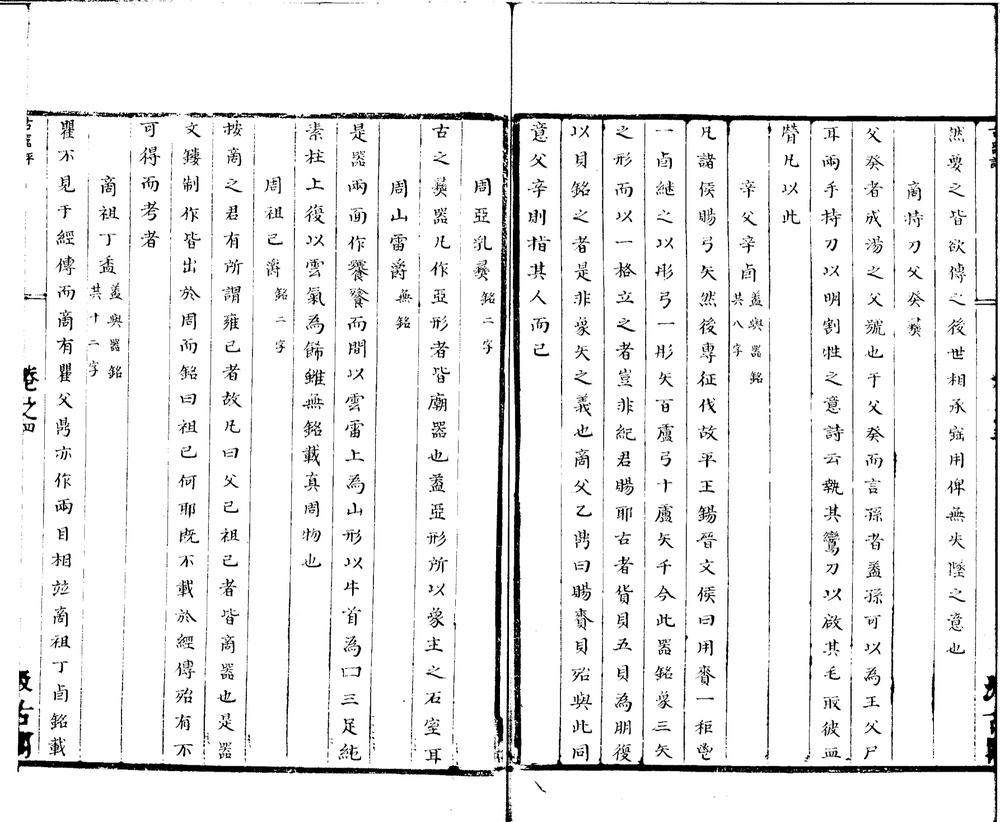 然要之皆欲傳之後世相承寳用俾無失墜之意也
商持刀父癸彝
父癸者成湯之父號也于父癸而言孫者葢孫可以為王父尸
耳兩手持刀以明割牲之意詩云執其鸞刀以啟其毛取彼血
膋凡以此
辛父辛卣 葢與器銘共八字
凡諸侯賜弓矢然後專征伐故平王錫晉文侯曰用賚一秬鬯
一卣継之以彤弓一彤矢百盧弓十盧矢千今此器銘象三矢
之形而以一格立之者豈非紀君賜耶古者貨貝五貝為朋復
以貝銘之者是非象矢之義也商父乙鼎曰賜賚貝殆與此同
意父辛則指其人而已
周亞乳彝 銘二字
古之彝器凡作亞形者皆廟器也葢亞形所以象主之石室耳
周山雷爵 無銘
是器兩面作饕餮而間以雲雷上為山形以牛首為口三足純
素柱上復以雲氣為餙雖無銘載真周物也
周祖己爵 銘二字
按商之君有所謂雍己者故凡曰父己祖己者皆商器也是器
文鏤制作皆出於周而銘曰祖己何耶旣不載於經傳殆有不
可得而考者
商祖丁盉 葢與器銘共十二字
瞿不見于經傳而商有瞿父鼎亦作兩目相竝商祖丁卣銘載
卷之四
汲古閣